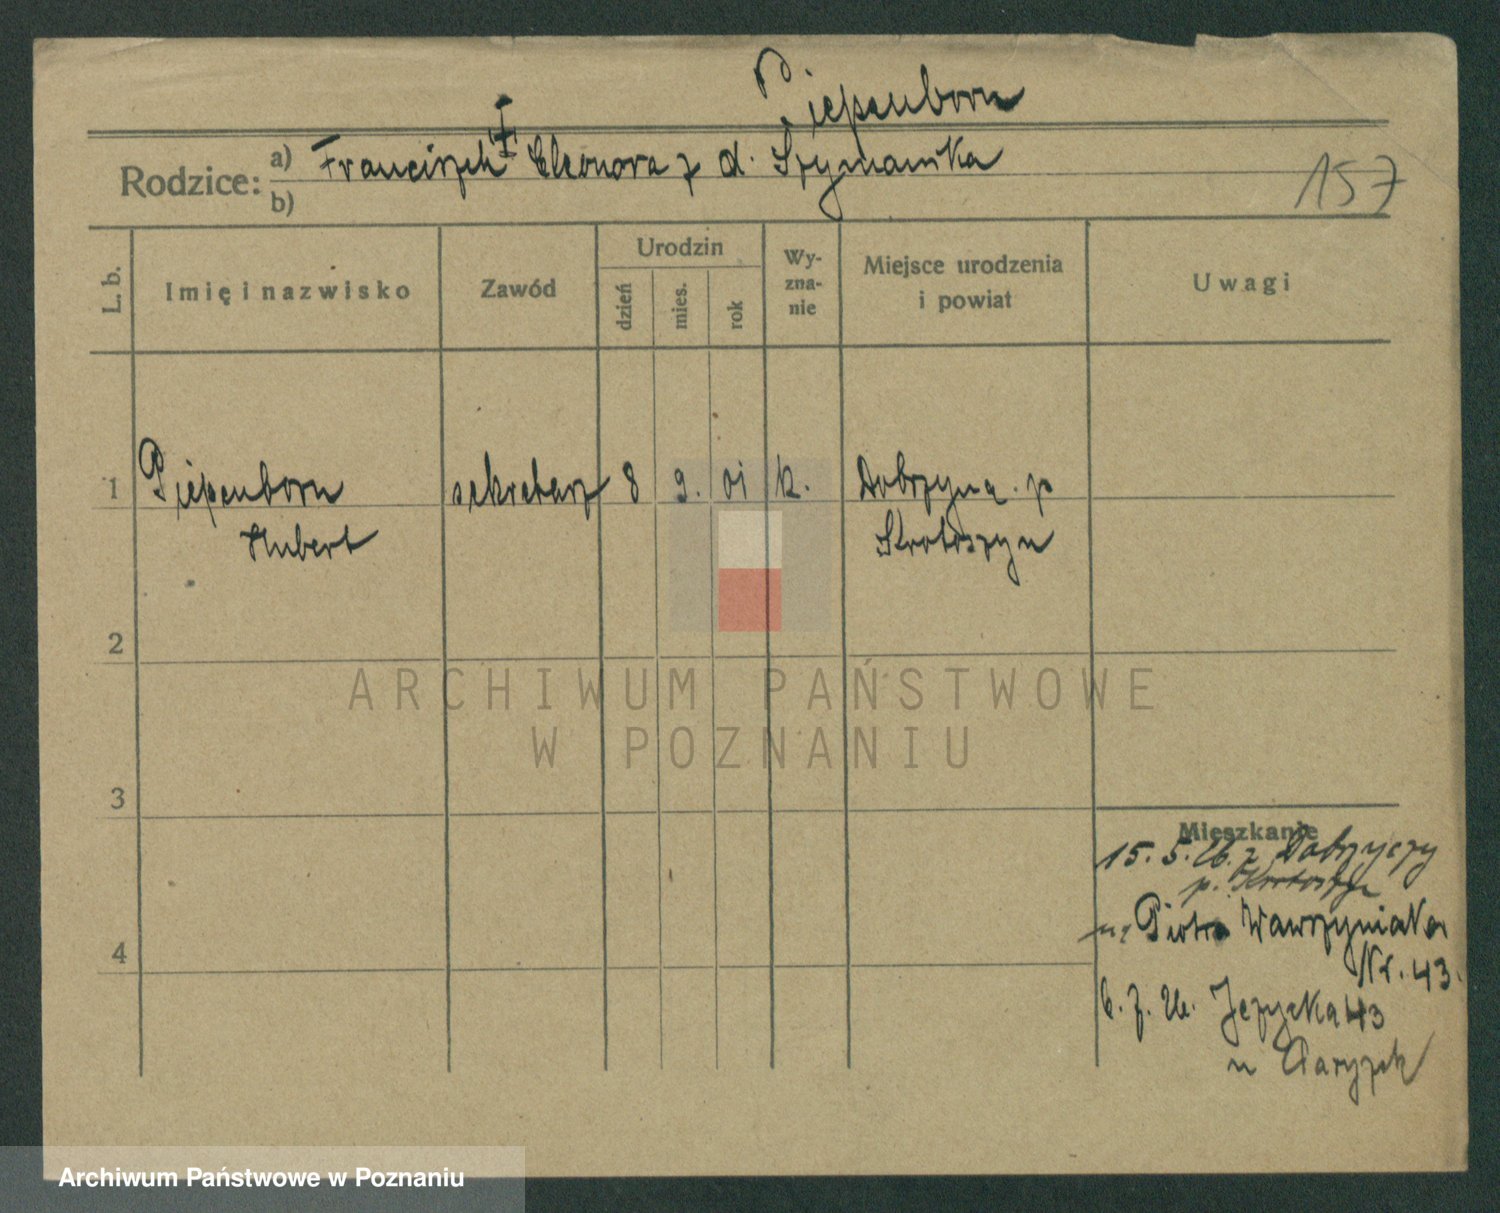 Piepenborn
Rodzice: a) Franciszek Eleonora z d. Szymańska
b)
157
L. b.
Imię i nazwisko
Zawód
Urodzin
dzień
mies.
rok
Wy-
zna-
nie
Miejsce urodzenia
i powiat
Uwagi
1 Piepenborn sekretarz 8 9. 01 k. Dobrzyca. p
Hubert Krotoszyn
2
3
4
Mieszkanie
15. 5. 26. z Dobrzycy
p. Krotoszyn
Piotra Wawrzyniaka
Nr. 43.
6. 7. 26. Jeżycka 43
u
ARCHIWUM PAŃSTWOWE
W POZNANIU
Archiwum Państwowe w Poznaniu